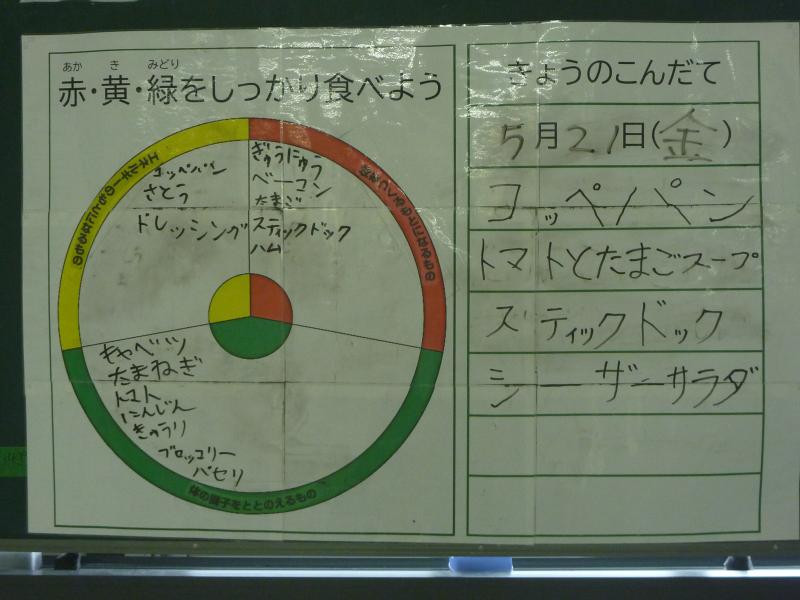 あか き みどり
赤・黄・緑をしっかり食べよう
エネルギーのもとになるもの
コッペパン
さとう
ドレッシング
ぎゅうにゅう
ベーコン
たまご
スティックドック
ハム
キャベツ
たまねぎ
トマト
にんじん
きゅうり
ブロッコリー
パセリ
体の調子をととのえるもの
きょうのこんだて
5月21日(金)
コッペパン
トマトとたまごスープ
スティックドック
シーザーサラダ